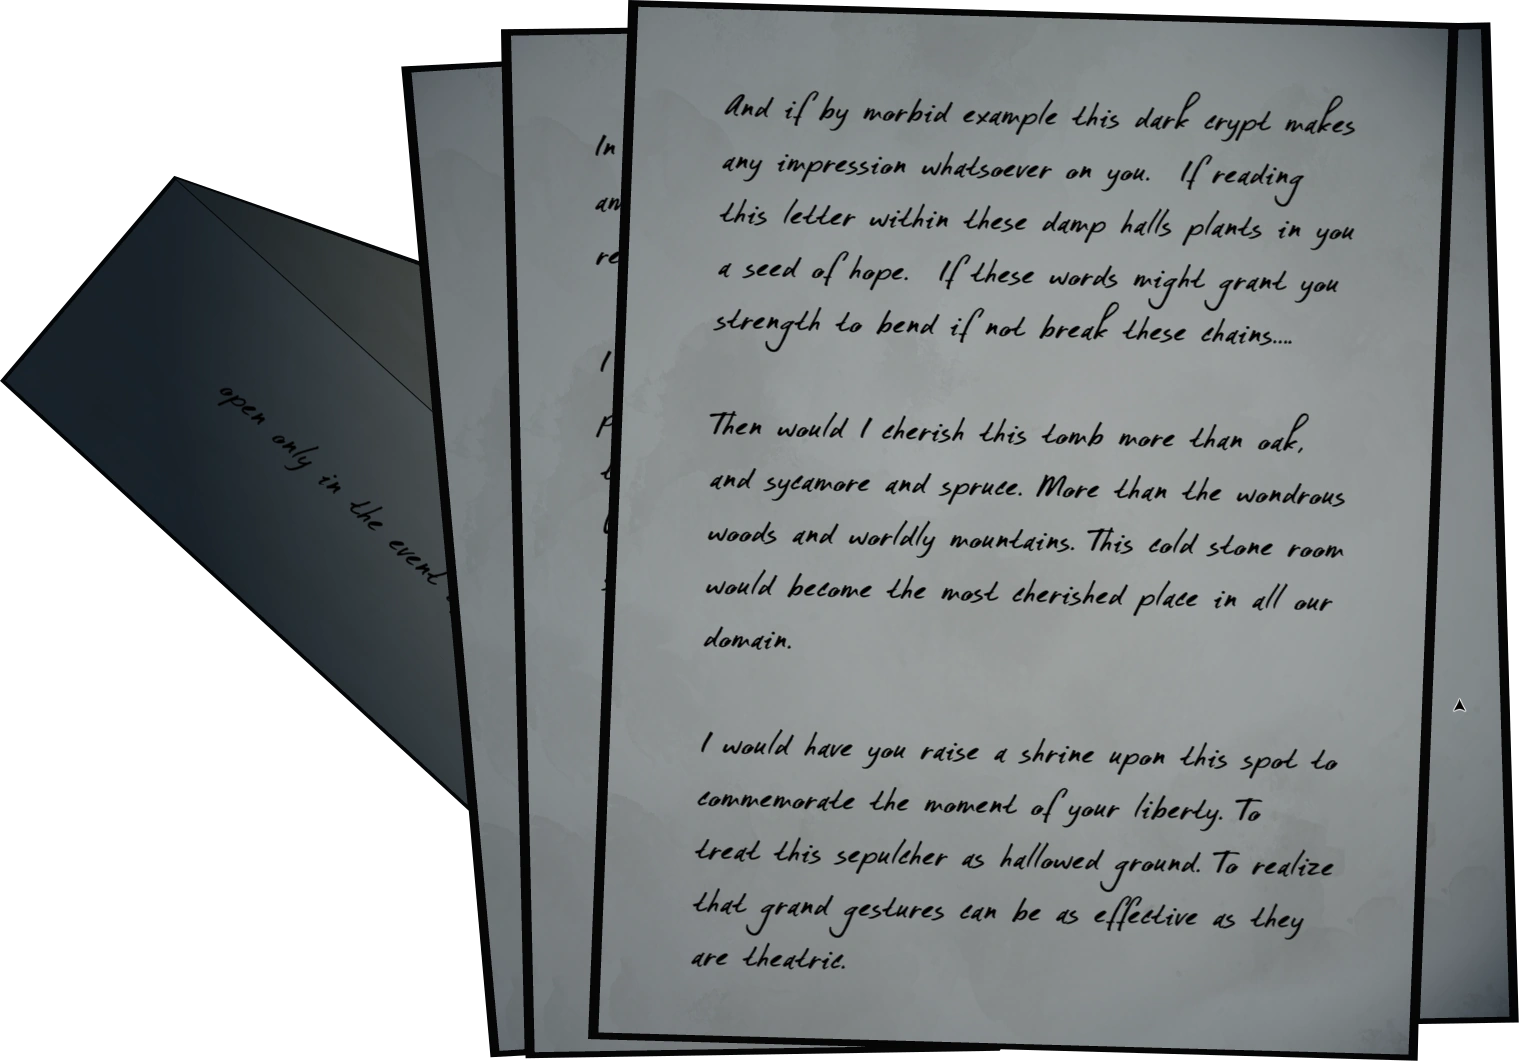 open only in the event
In
am
re
I
And if by morbid example this dark crypt makes
any impression whatsoever on you. If reading
this letter within these damp halls plants in you
a seed of hope. If these words might grant you
strength to bend if not break these chains....
Then would I cherish this tomb more than oak,
and sycamore and spruce. More than the wondrous
woods and worldly mountains. This cold stone room
would become the most cherished place in all our
domain.
I would have you raise a shrine upon this spot to
commemorate the moment of your liberty. To
treat this sepulcher as hallowed ground. To realize
that grand gestures can be as effective as they
are theatric.